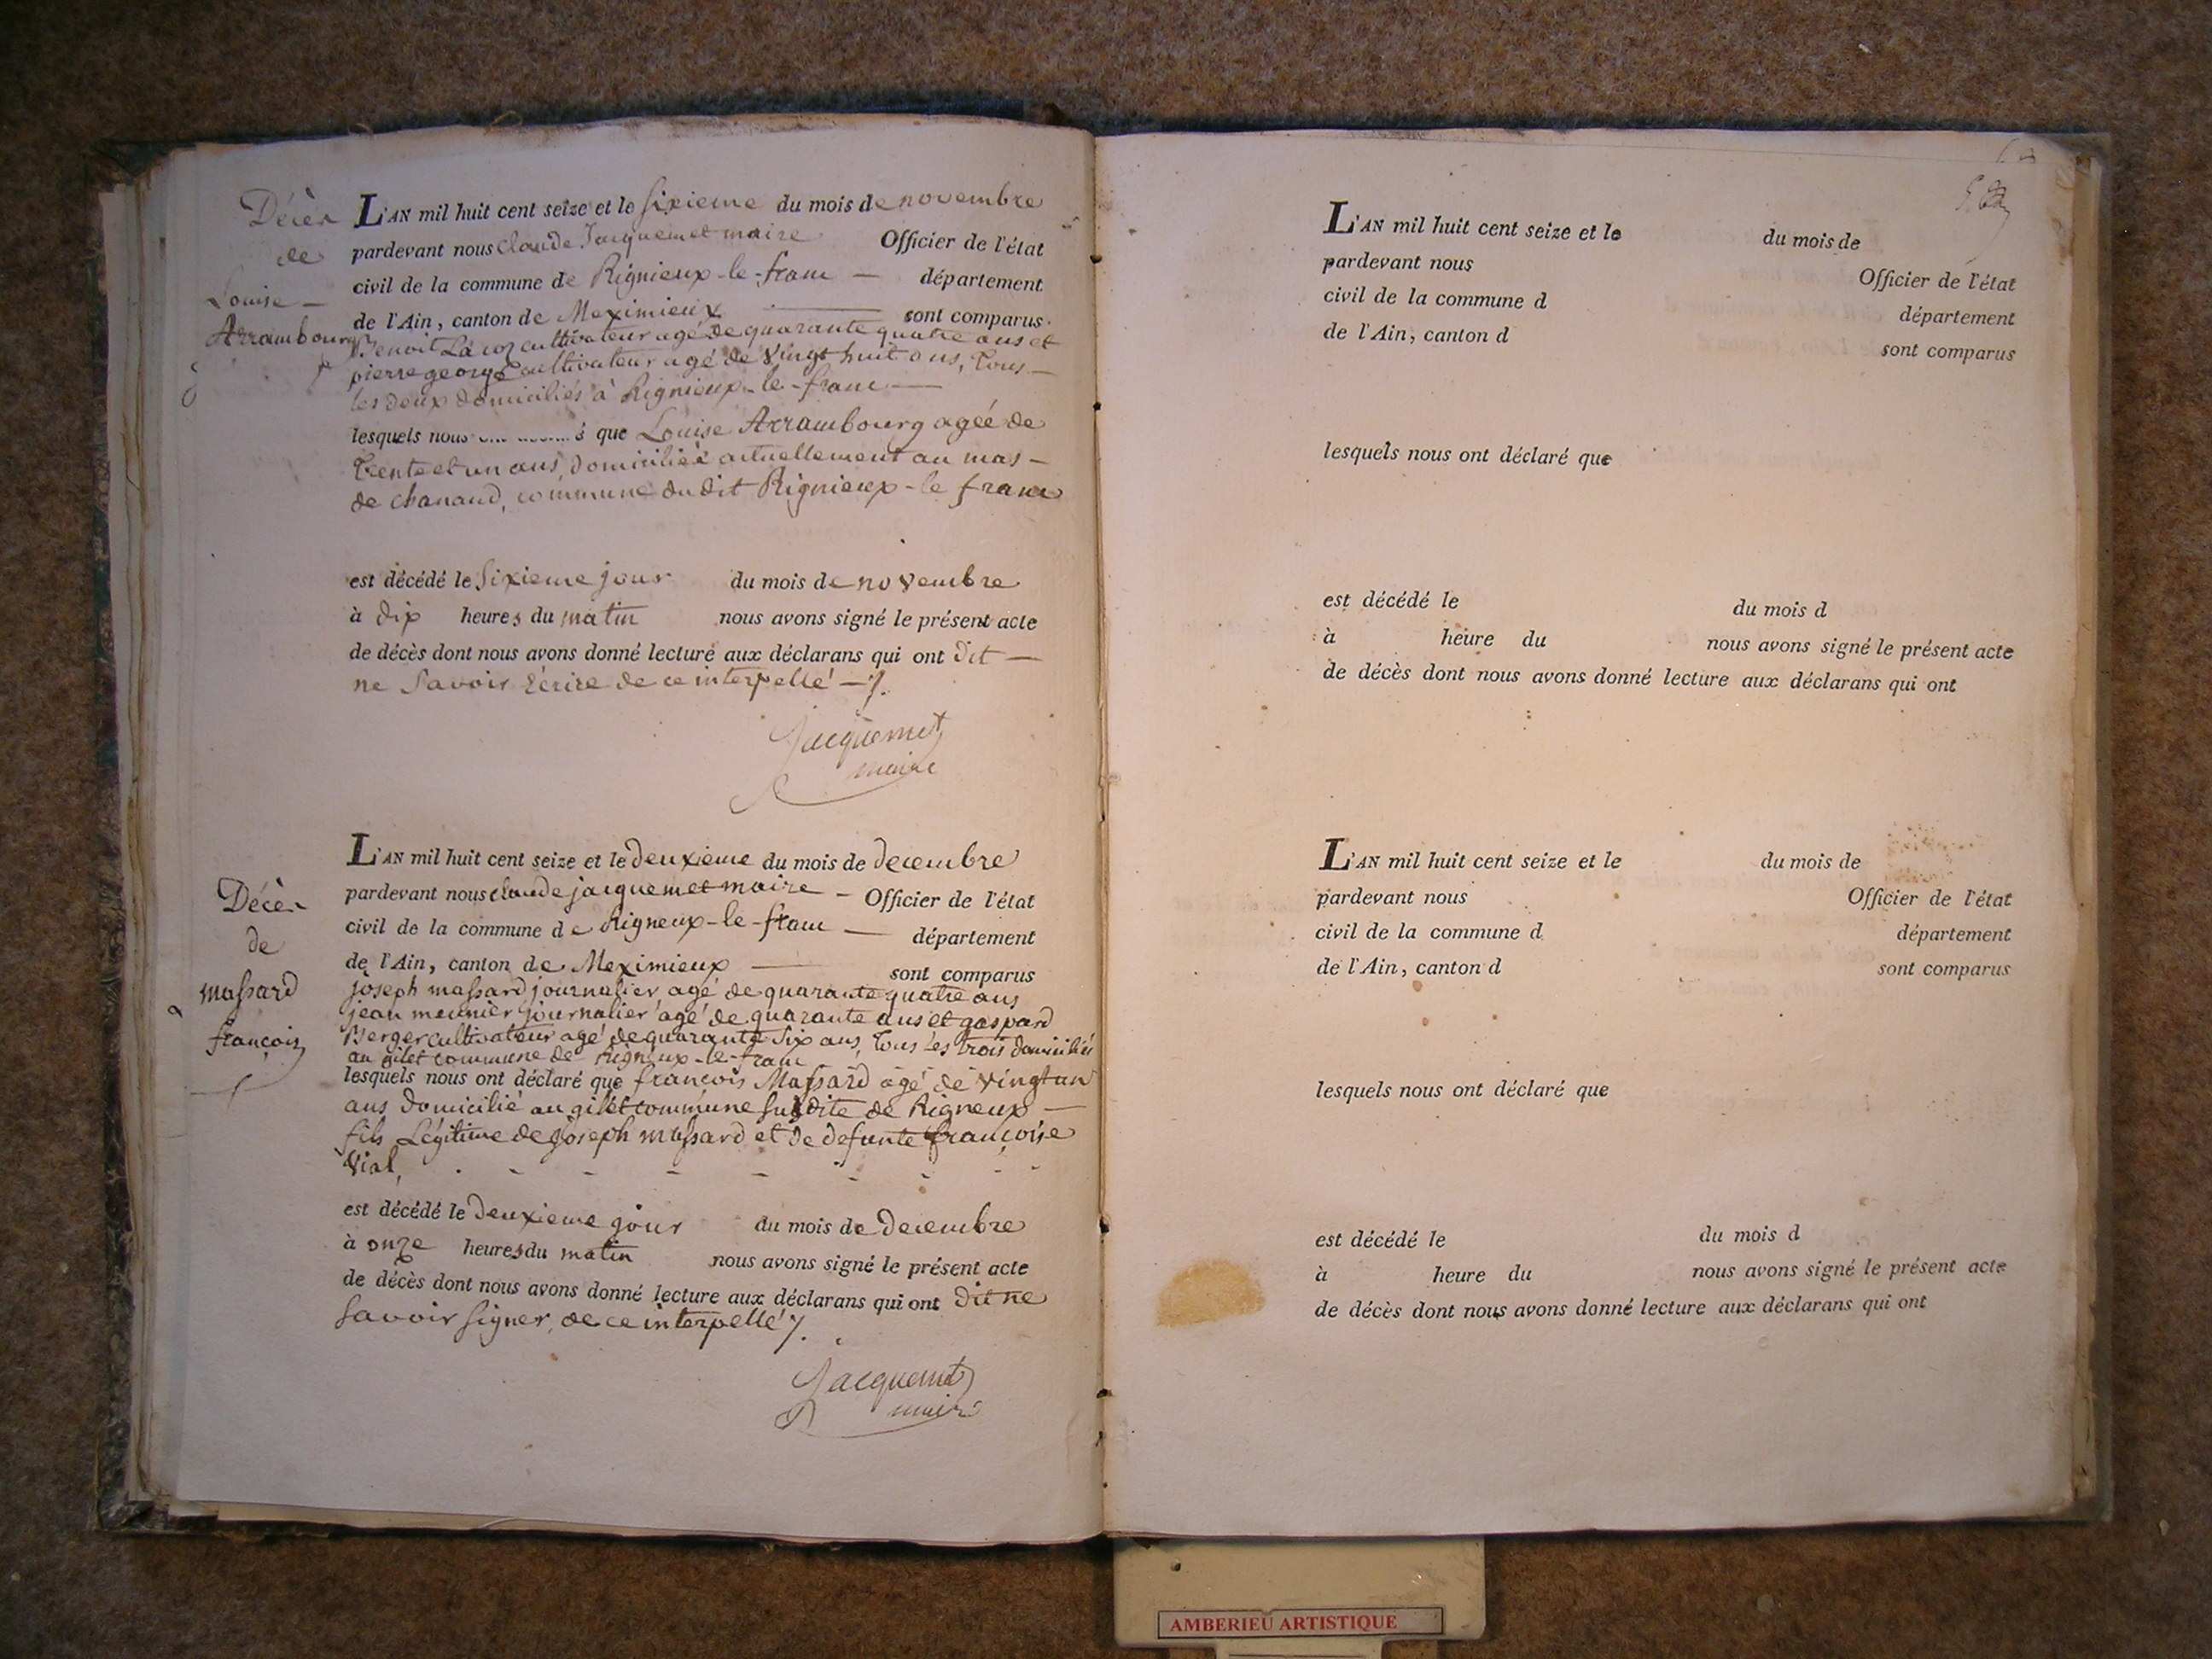 Décès
de
Louise —
Arrambourg
L'AN mil huit cent seize et le sixieme du mois de novembre
pardevant nous Claude Jacquemet maire Officier de l'état
civil de la commune de Rignieux-le-franc — département
de l'Ain, canton de Meximieux — sont comparus
Benoit cultivateur agé de quarante quatre ans et
pierre george cultivateur agé de vingt huit ans, tous —
les deux domiciliés à Rignieux-le-franc —
lesquels nous que Louise Arrambourg agée de
trente et un ans, domiciliée actuellement au mas —
de chanaud, commune du dit Rignieux-le franc
est décédé le sixieme jour du mois de novembre
à dix heures du matin nous avons signé le présent acte
de décès dont nous avons donné lecture aux déclarans qui ont dit —
ne savoir écrire de ce interpellé —
Jacquemet
maire
Décès
de
massard
françois
L'AN mil huit cent seize et le deuxieme du mois de decembre
pardevant nous claude jacquemet maire — Officier de l'état
civil de la commune de Rigneux-le-franc — département
de l'Ain, canton de Meximieux — sont comparus
joseph massard journalier agé de quarante quatre ans
jean meunier journalier agé de quarante ans et gaspard
Berger cultivateur agé de quarante six ans, tous les trois domiciliés
au gilet commune de Rigneux-le-franc
lesquels nous ont déclaré que françois Massard agé de vingt un
ans domicilié au gilet commune susdite de Rigneux —
fils Légitime de joseph massard et de defunte françoise
Vial,
est décédé le deuxieme jour du mois de decembre
à onze heures du matin nous avons signé le présent acte
de décès dont nous avons donné lecture aux déclarans qui ont dit ne
savoir signer, de ce interpellé
Jacquemet
maire
L'AN mil huit cent seize et le du mois de
pardevant nous Officier de l'état
civil de la commune d département
de l'Ain, canton d sont comparus
lesquels nous ont déclaré que
est décédé le du mois d
à heure du nous avons signé le présent acte
de décès dont nous avons donné lecture aux déclarans qui ont
L'AN mil huit cent seize et le du mois de
pardevant nous Officier de l'état
civil de la commune d département
de l'Ain, canton d sont comparus
lesquels nous ont déclaré que
est décédé le du mois d
à heure du nous avons signé le présent acte
de décès dont nous avons donné lecture aux déclarans qui ont
AMBERIEU ARTISTIQUE